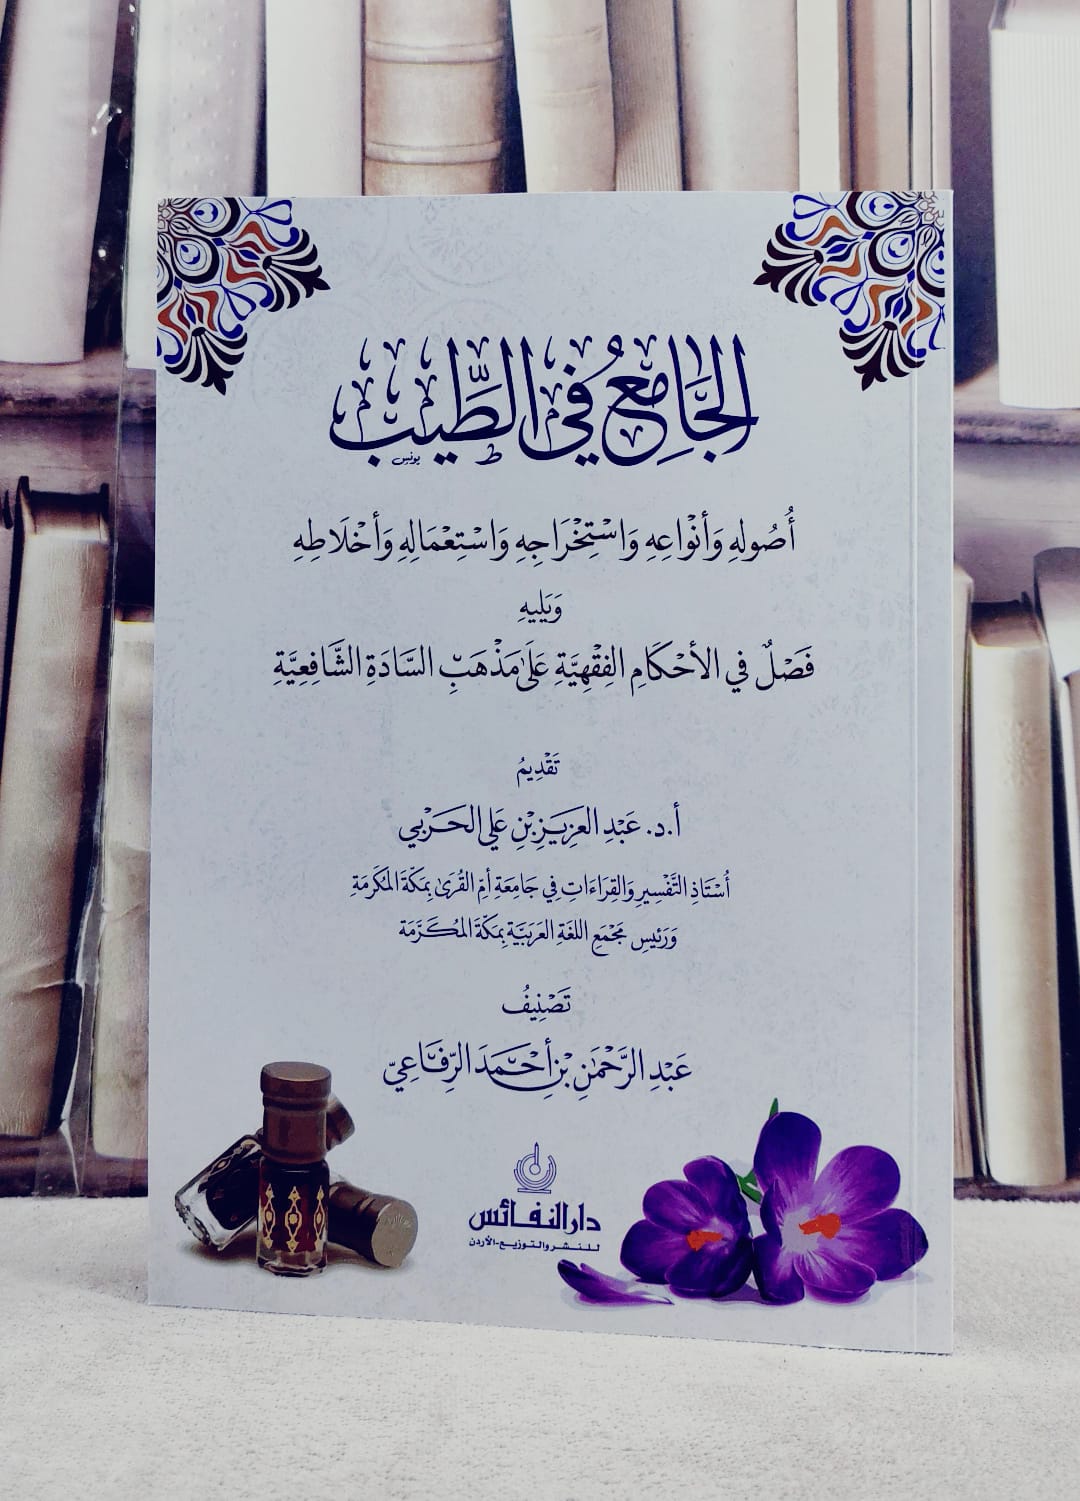 الجَامِعُ فِي الطِّيبِ
يونس
أُصُولِهِ وَأَنْوَاعِهِ وَاسْتِخْرَاجِهِ وَاسْتِعْمَالِهِ وَأَخْلَاطِهِ
وَيَلِيهِ
فَصْلٌ في الأَحْكَامِ الفِقْهِيَّةِ عَلَىٰ مَذْهَبِ السَّادَةِ الشَّافِعِيَّةِ
تَقْدِيمُ
أ.د. عَبْدِ العَزِيزِ بْنِ عَلي الحَرْبي
أُسْتَاذِ التَّفْسِيرِ وَالقِرَاءَاتِ فِي جَامِعَةِ أُمِّ القُرَىٰ بِمَكَّةَ المُكَرَّمَةِ
وَرَئِيسِ مَجْمَعِ اللغَةِ العَرَبِيَّةِ بِمَكَّةَ المُكَرَّمَة
تَصْنِيفُ
عَبْدِ الرَّحْمَٰنِ بْنِ أَحْمَدَ الرِّفَاعِيّ
دار النفائس
للنشر والتوزيع-الأردن